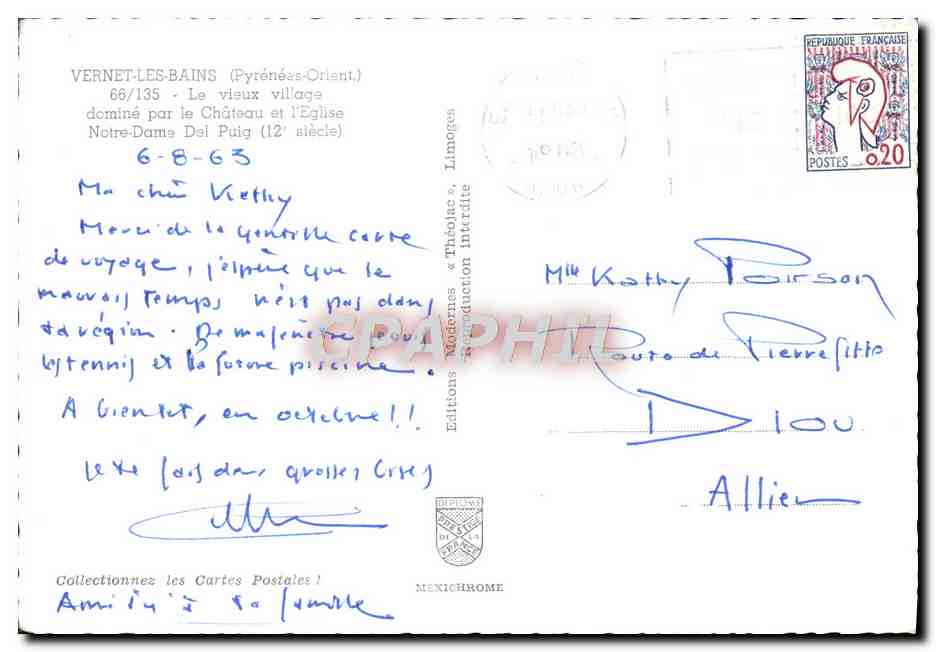 VERNET-LES-BAINS (Pyrénées-Orient.)
66/135 - Le vieux village
dominé par le Château et l'Eglise
Notre-Dame Del Puig (12e siècle)
6-8-63
Ma chère Kathy
Merci de la gentille carte
de voyage, j'espère que le
mauvais temps n'est pas dans
ta région. De ma fenêtre je vois
les tennis et la future piscine.
A bientôt, en octobre!!
Je te fais deux grosses bises
Collectionnez les Cartes Postales !
Amitié à ta famille.
Editions Modernes « Théojac », Limoges
Reproduction interdite
DIPLOME
PRESTIGE
DE LA
FRANCE
MEXICHROME
REPUBLIQUE FRANÇAISE
POSTES 0,20
Mlle Kathy Poirson
Route de Pierrefitte
DIOU
Allier
CPAPHIL